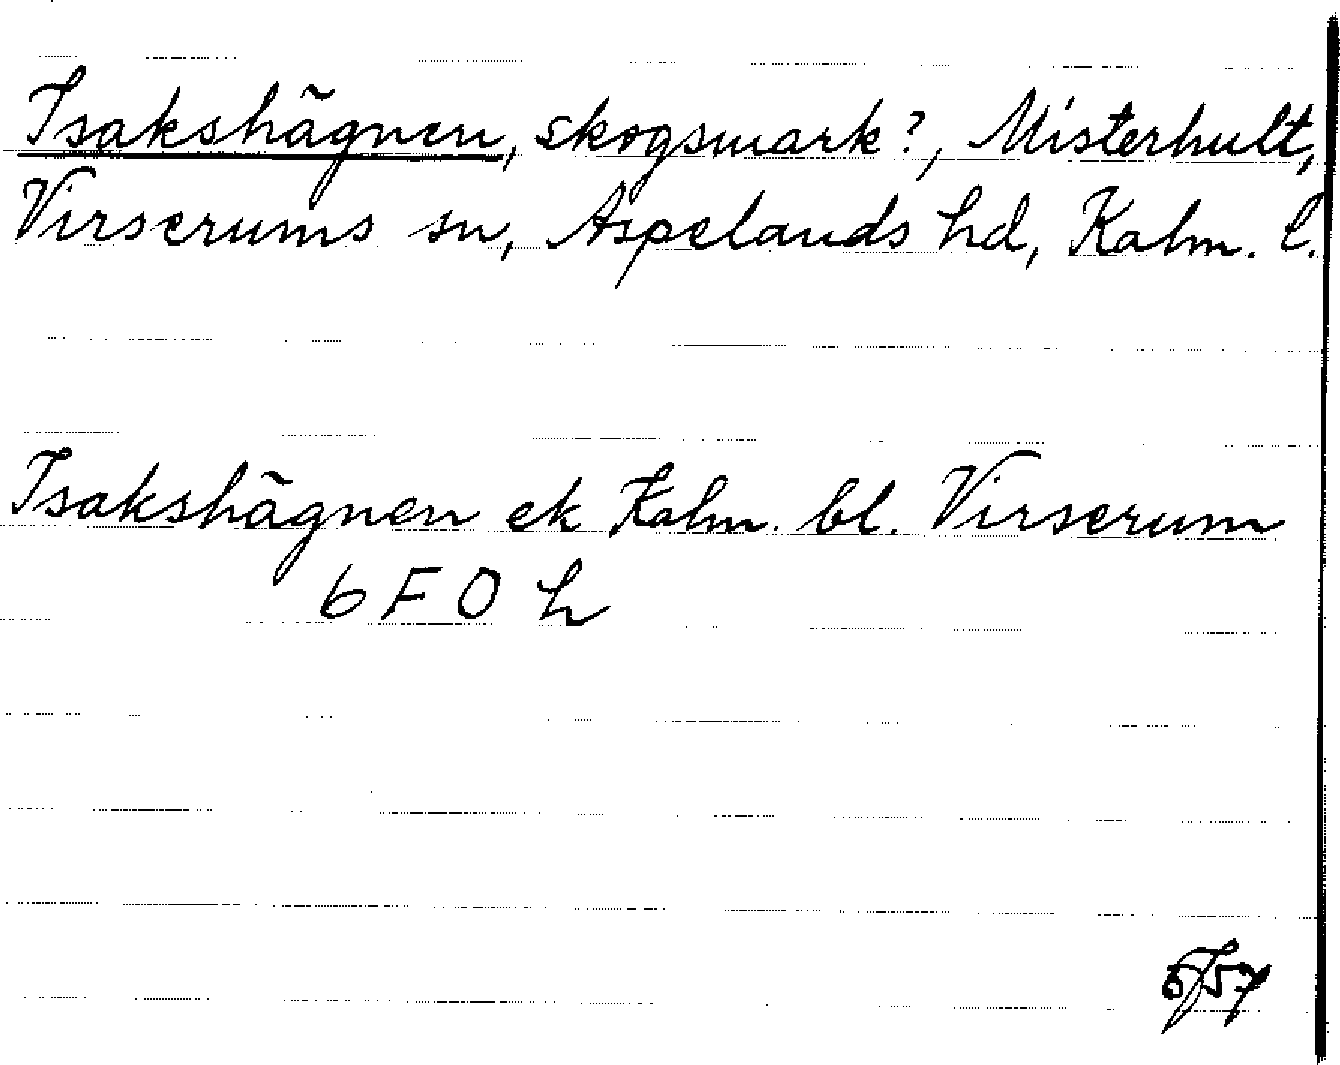 Isakshägnen, skogsmark?, Misterhult,
Virserums sn, Aspelands hd, Kalm. l.
Isakshägnen ek Kalm. bl. Virserum
6 F O h